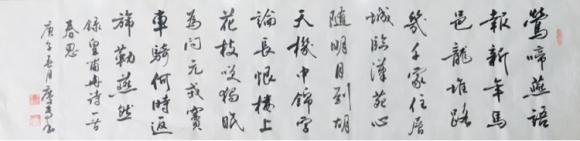 鶯啼燕語
報新年馬
邑龍堆路
幾千家住層
城臨漢苑心
隨明月到胡
天機中錦字
論長恨樓上
花枝咲獨眠
為問元戎竇
車騎何時返
旆勒燕然
錄皇甫冉詩一首
春思
庚子 月